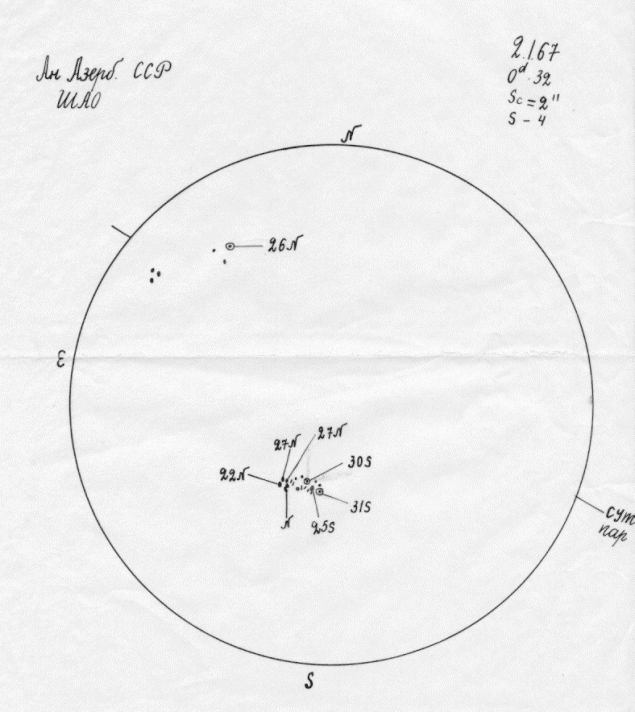 Ан Азерб. ССР
ШАО
2.1.67
0ᵈ.32
Sc = 2"
S - 4
N
26N
E
27N
27N
22N
30S
31S
N
25S
сут
пар
S